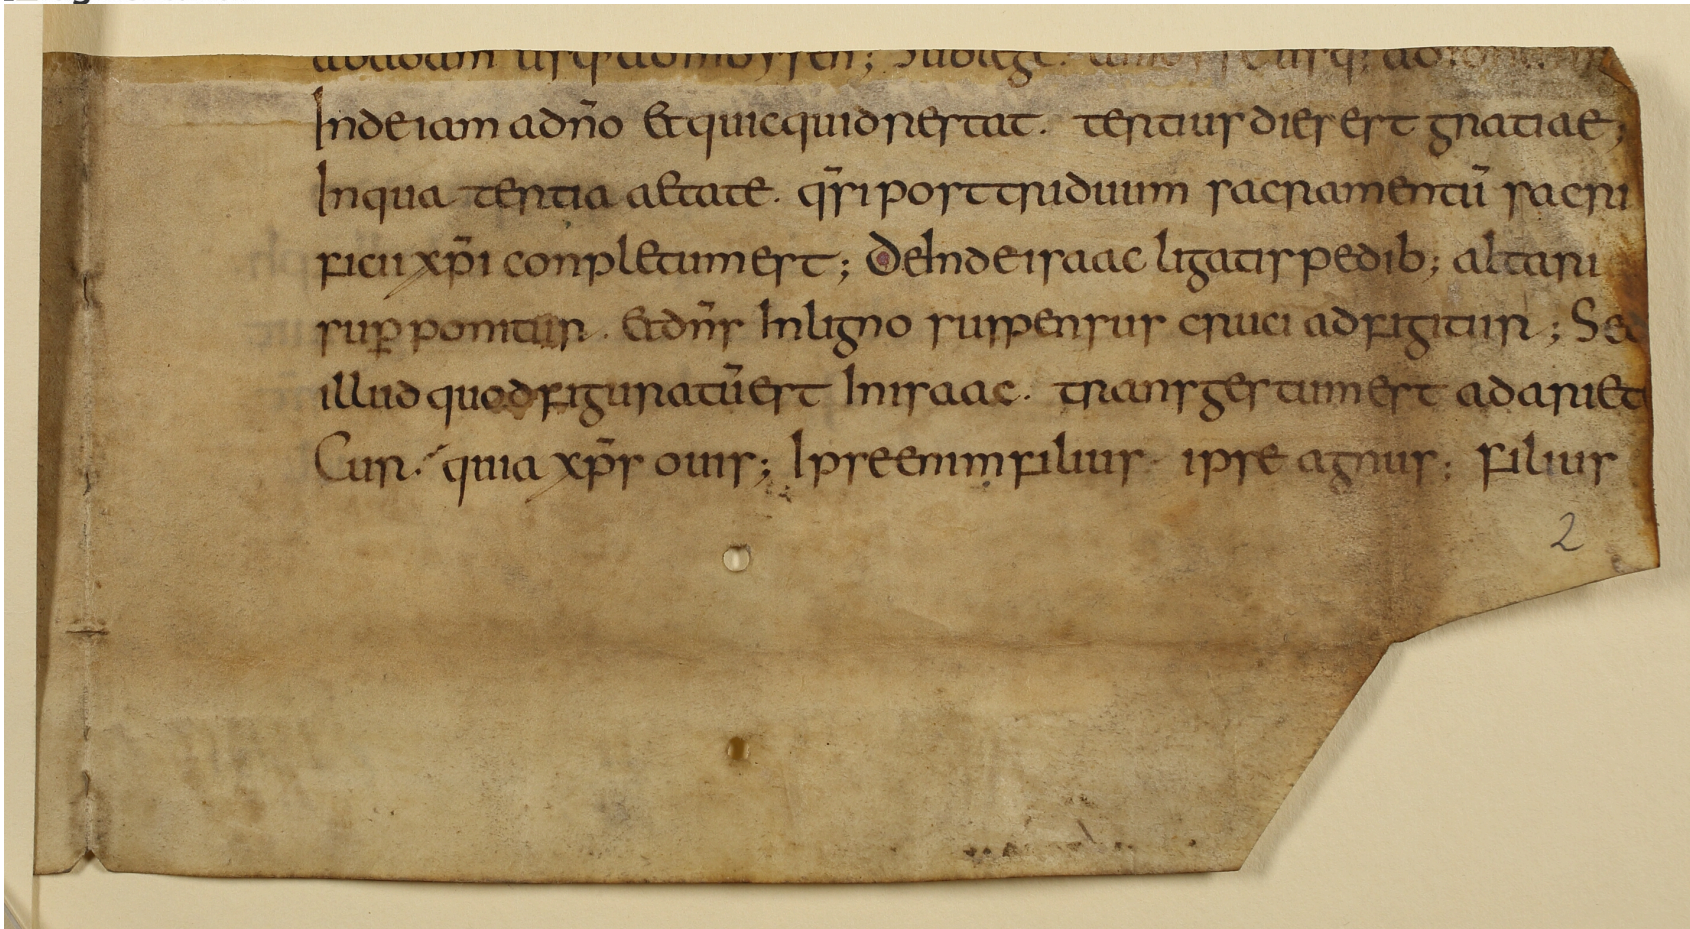 abadam usq; admoysen; Sublege. amoyse usq; ad
Indeiam adn̄o Et quicquid restat. tertius dies est gratiae;
Inqua tertia aetate. q̄si post triduum sacramentū sacri
ficii xp̄i conpletum est; deInde isaac ligatis pedib; altari
sup̱ponitur. Et dn̄s Inligno suspensus cruci adfigitur; Sed
illud quod figuratū est Inisaac. transgestum est ad ariet
Cur. quia xp̄s ouis; Ipse enim filius. ipse agnus; filius
2